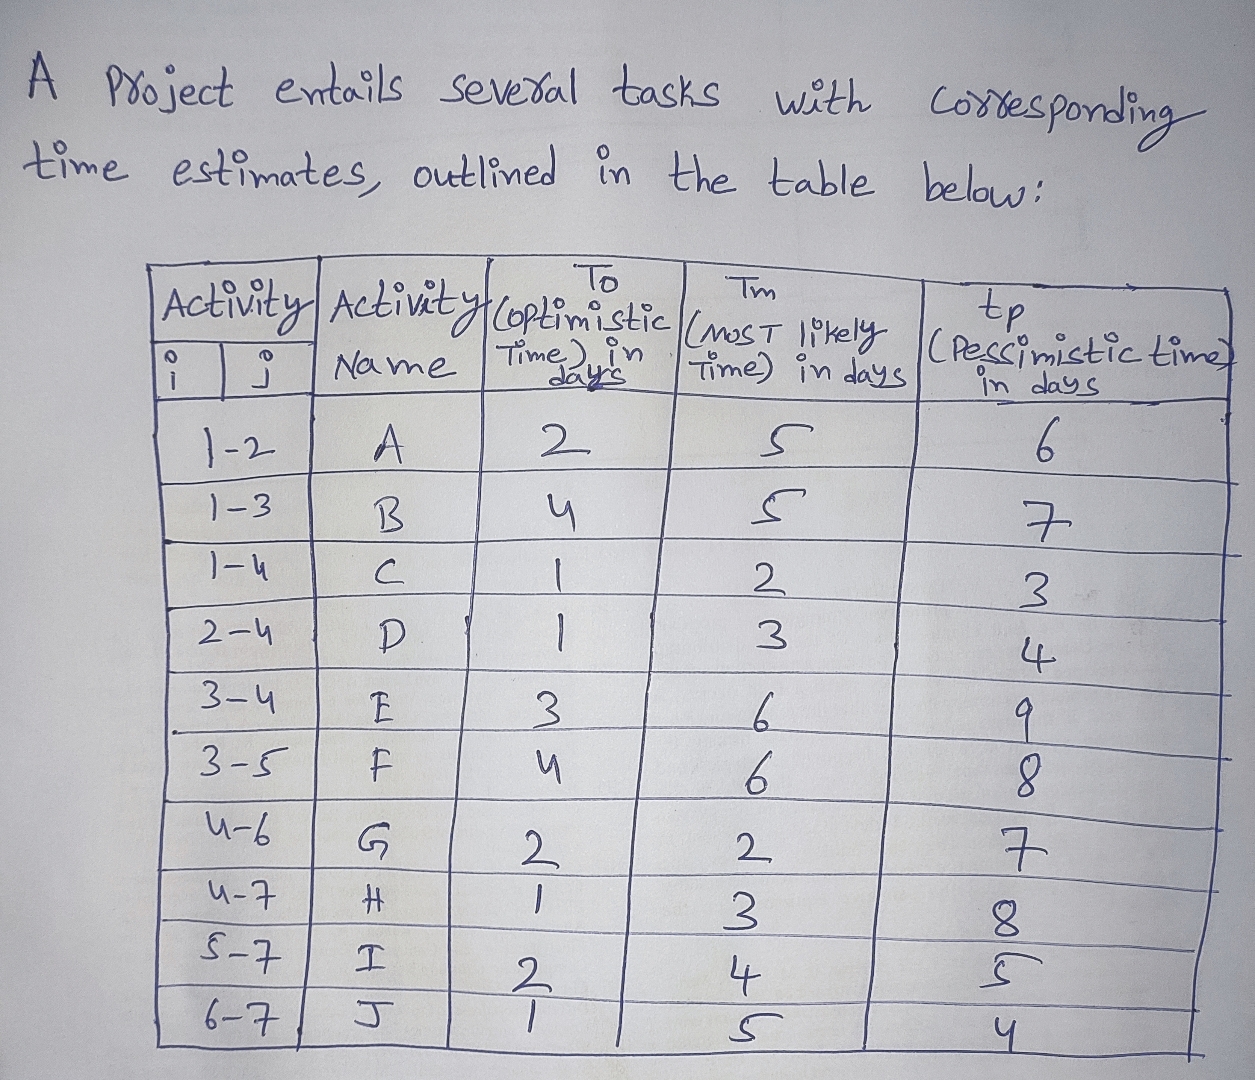 A Project entails several tasks with corresponding
time estimates, outlined in the table below:
Activity | Activity Name | To (optimistic Time) in days | Tm (MOST likely Time) in days | tp (Pessimistic time) in days
i | j
1-2 | A | 2 | 5 | 6
1-3 | B | 4 | 5 | 7
1-4 | C | 1 | 2 | 3
2-4 | D | 1 | 3 | 4
3-4 | E | 3 | 6 | 9
3-5 | F | 4 | 6 | 8
4-6 | G | 2 | 2 | 7
4-7 | H | 1 | 3 | 8
5-7 | I | 2 | 4 | 5
6-7 | J | 1 | 5 | 4